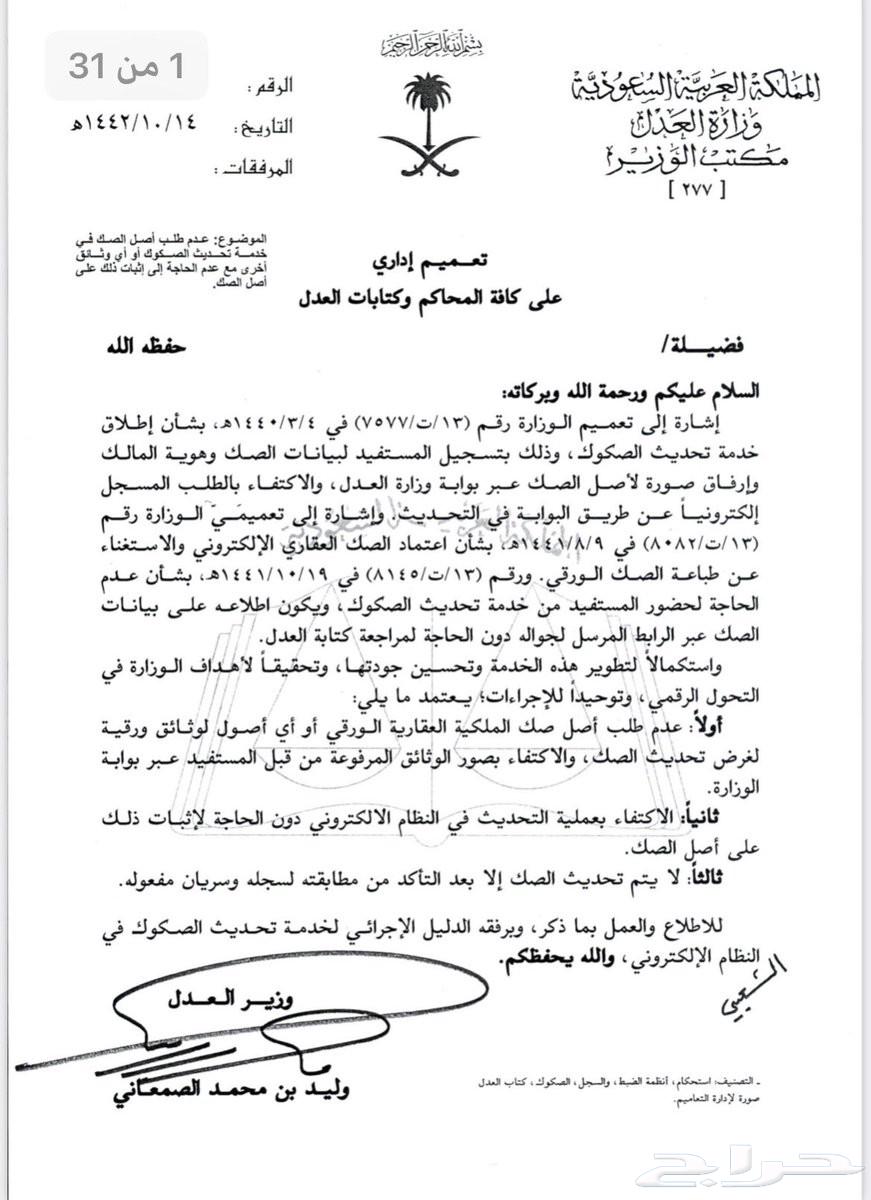 1 من 31
بسم الله الرحمن الرحيم
المملكة العربية السعودية
وزارة العدل
مكتب الوزير
[ ٢٧٧ ]
الرقم :
التاريخ : ١٤٤٢/١٠/١٤هـ
المرفقات :
الموضوع: عدم طلب أصل الصك في
خدمة تحديث الصكوك أو أي وثائق
أخرى مع عدم الحاجة إلى إثبات ذلك على
أصل الصك.
تعميم إداري
على كافة المحاكم وكتابات العدل
فضيلة/ حفظه الله
السلام عليكم ورحمة الله وبركاته:
إشارة إلى تعميم الوزارة رقم (١٣/ت/٧٥٧٧) في ١٤٤٠/٣/٤هـ، بشأن إطلاق
خدمة تحديث الصكوك، وذلك بتسجيل المستفيد لبيانات الصك وهوية المالك
وإرفاق صورة لأصل الصك عبر بوابة وزارة العدل، والاكتفاء بالطلب المسجل
إلكترونياً عن طريق البوابة في التحديث. وإشارة إلى تعميمي الوزارة رقم
(١٣/ت/٨٠٨٢) في ١٤٤١/٨/٩هـ، بشأن اعتماد الصك العقاري الإلكتروني والاستغناء
عن طباعة الصك الورقي. ورقم (١٣/ت/٨١٤٥) في ١٤٤١/١٠/١٩هـ، بشأن عدم
الحاجة لحضور المستفيد من خدمة تحديث الصكوك، ويكون اطلاعه على بيانات
الصك عبر الرابط المرسل لجواله دون الحاجة لمراجعة كتابة العدل.
واستكمالاً لتطوير هذه الخدمة وتحسين جودتها، وتحقيقاً لأهداف الوزارة في
التحول الرقمي، وتوحيداً للإجراءات؛ يعتمد ما يلي:
أولاً: عدم طلب أصل صك الملكية العقارية الورقي أو أي أصول لوثائق ورقية
لغرض تحديث الصك، والاكتفاء بصور الوثائق المرفوعة من قبل المستفيد عبر بوابة
الوزارة.
ثانياً: الاكتفاء بعملية التحديث في النظام الالكتروني دون الحاجة لإثبات ذلك
على أصل الصك.
ثالثاً: لا يتم تحديث الصك إلا بعد التأكد من مطابقته لسجله وسريان مفعوله.
للاطلاع والعمل بما ذكر، وبرفقه الدليل الإجرائي لخدمة تحديث الصكوك في
النظام الإلكتروني، والله يحفظكم.
وزير العدل
وليد بن محمد الصمعاني
ـ التصنيف: استحكام، أنظمة الضبط، والسجل، الصكوك، كتاب العدل
صورة لإدارة التعاميم.
حراج